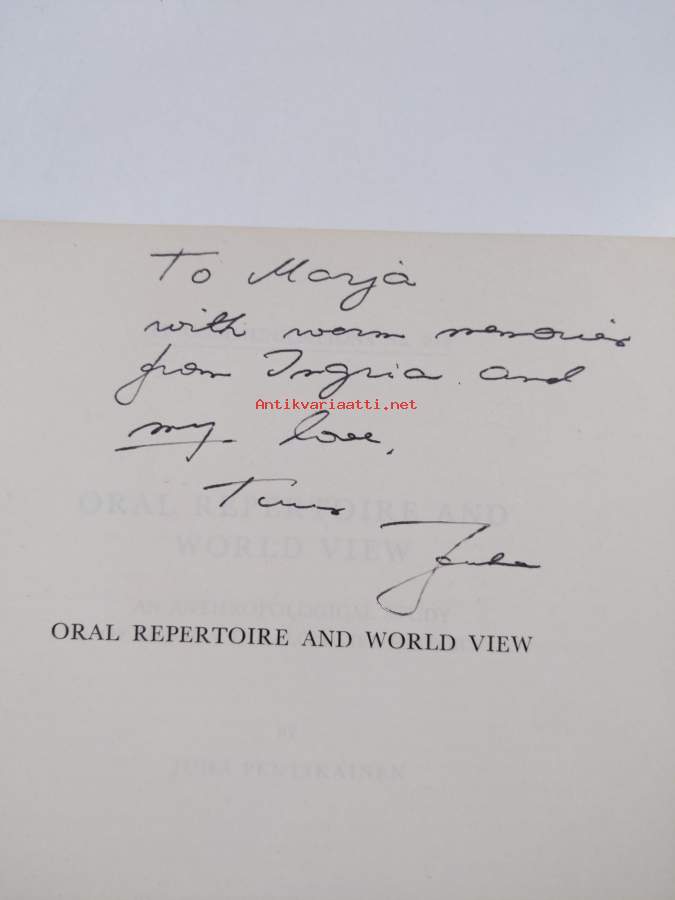 To Marja
with warm memories
from Ingria and
Antikvariaatti.net
my love,
Juha
ORAL REPERTOIRE AND WORLD VIEW
ORAL REPERTOIRE AND
WORLD VIEW
AN ANTHROPOLOGICAL STUDY
BY
JUHA PENTIKÄINEN